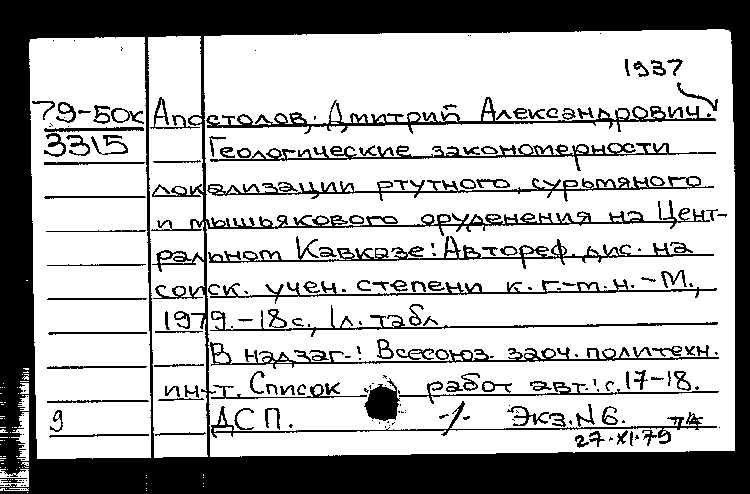 1937
79-50к Апостолов, Дмитрий Александрович.
3315 Геологические закономерности
локализации ртутного, сурьмяного
и мышьякового оруденения на Цент-
ральном Кавказе: Автореф. дис. на
соиск. учен. степени к. г.-м. н. - М.,
1979. - 18 с., 1 л. табл.
В надзаг.: Всесоюз. заоч. политехн.
ин-т. Список работ авт.: с. 17-18.
9 ДСП. -/- Экз. N 6.
27.XI.79